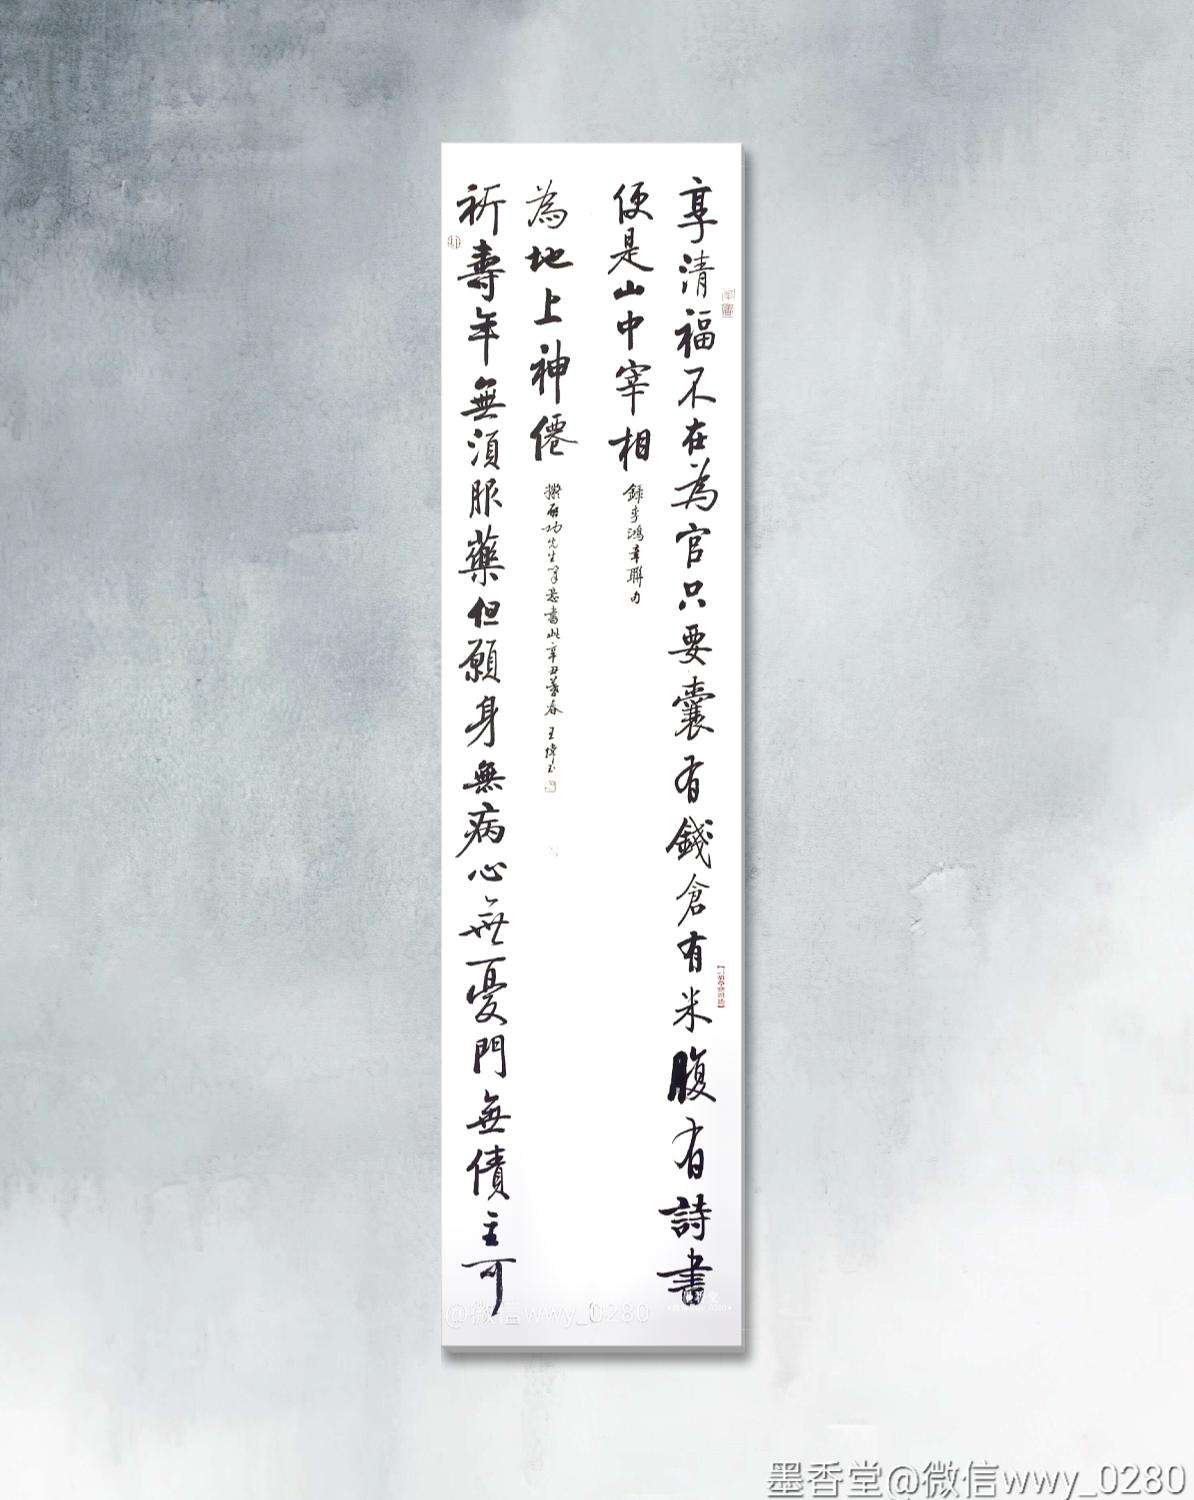 享清福不在為官只要囊有錢倉有米腹有詩書
便是山中宰相
錄李鴻章聯句
祈壽年無須服藥但願身無病心無憂門無債主可
為地上神僊
擬啟功先生筆意書此辛丑暮春 王偉玉
@微信wwy_0280
墨香堂@微信wwy_0280